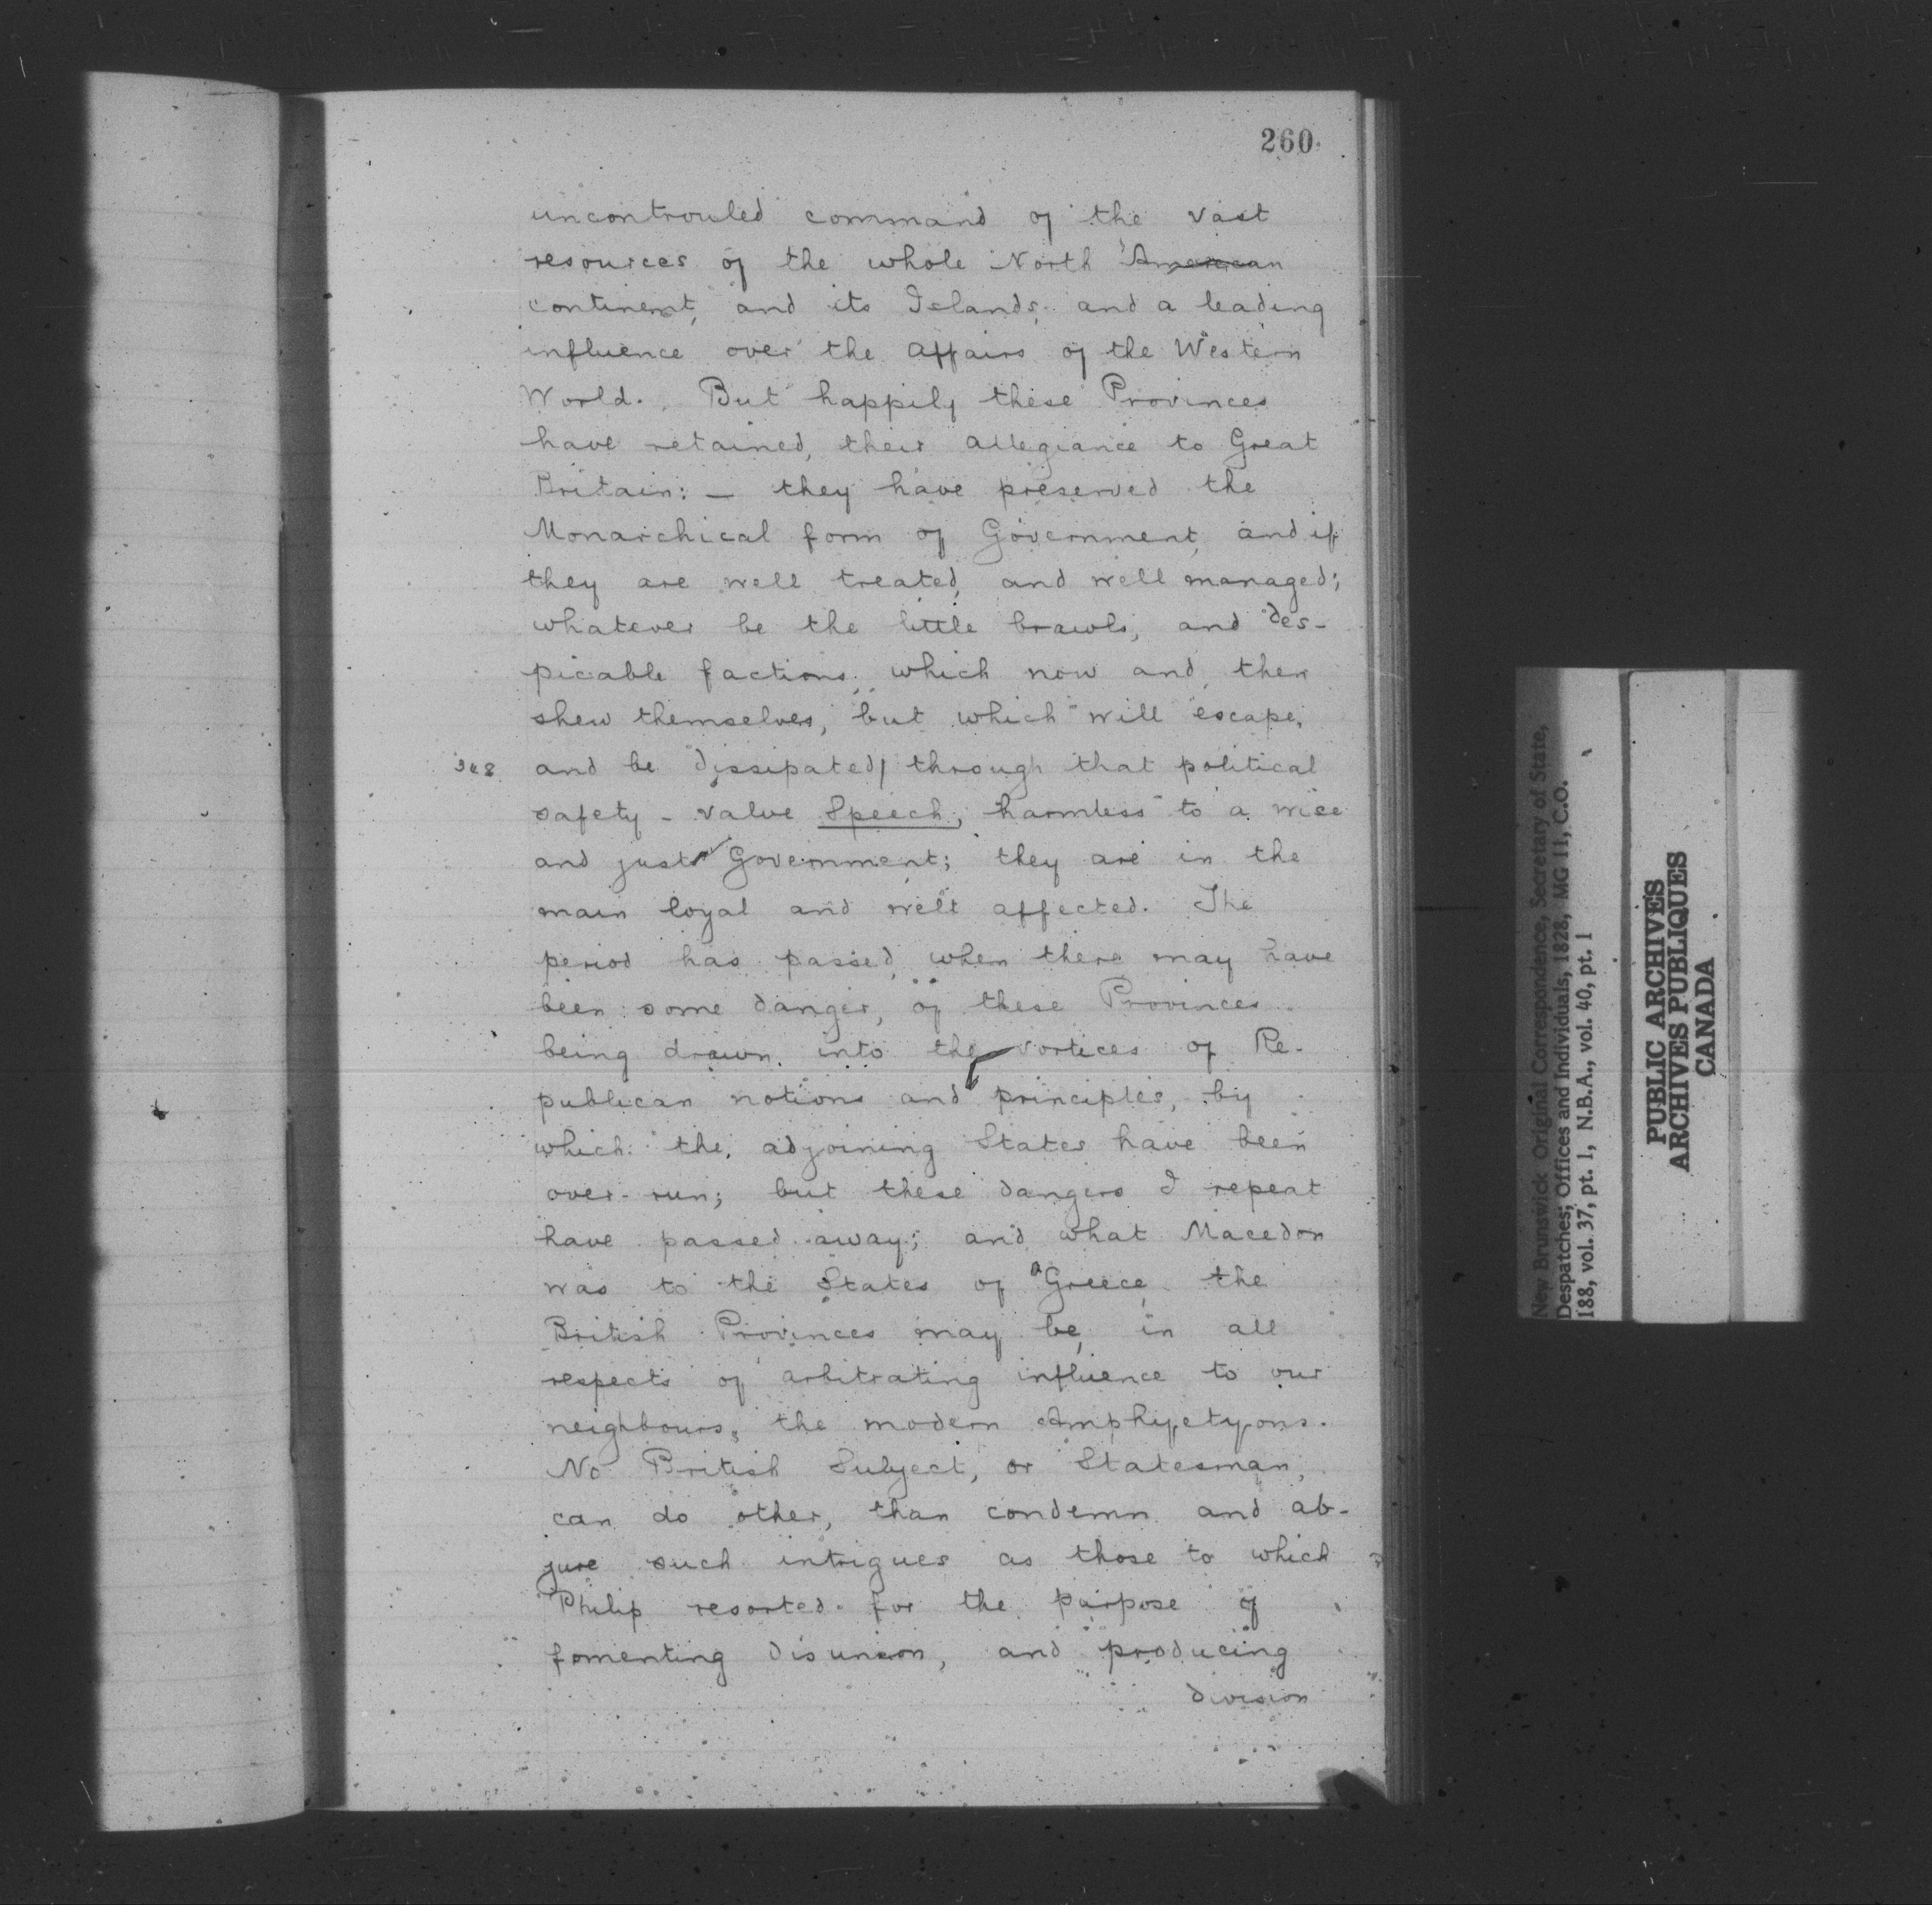 260
uncontrouled command of the vast
resources of the whole North American
continent, and its Islands, and a leading
influence over the affairs of the Western
World. But happily these Provinces
have retained, their allegiance to Great
Britain: — they have preserved the
Monarchical form of Government, and if
they are well treated, and well managed;
whatever be the little brawls, and des-
picable factions, which now and then
shew themselves, but which will escape,
and be dissipated, through that political
safety - valve Speech, harmless to a wise
and just Government; they are in the
main loyal and well affected. The
period has passed, when there may have
been some danger, of these Provinces
being drawn into the vortices of Re-
publican notions and principles, by
which the adjoining States have been
over-run; but these dangers I repeat
have passed away; and what Macedon
was to the States of Greece, the
British Provinces may be, in all
respects of arbitrating influence to our
neighbours, the modern Amphyctyons.
No British Subject, or Statesman,
can do other, than condemn and ab-
jure such intrigues as those to which
Philip resorted for the purpose of
fomenting disunion, and producing
division
New Brunswick Original Correspondence, Secretary of State,
Despatches; Offices and Individuals, 1828, MG 11, C.O.
188, vol. 37, pt. 1, N.B.A., vol. 40, pt. 1
PUBLIC ARCHIVES
ARCHIVES PUBLIQUES
CANADA